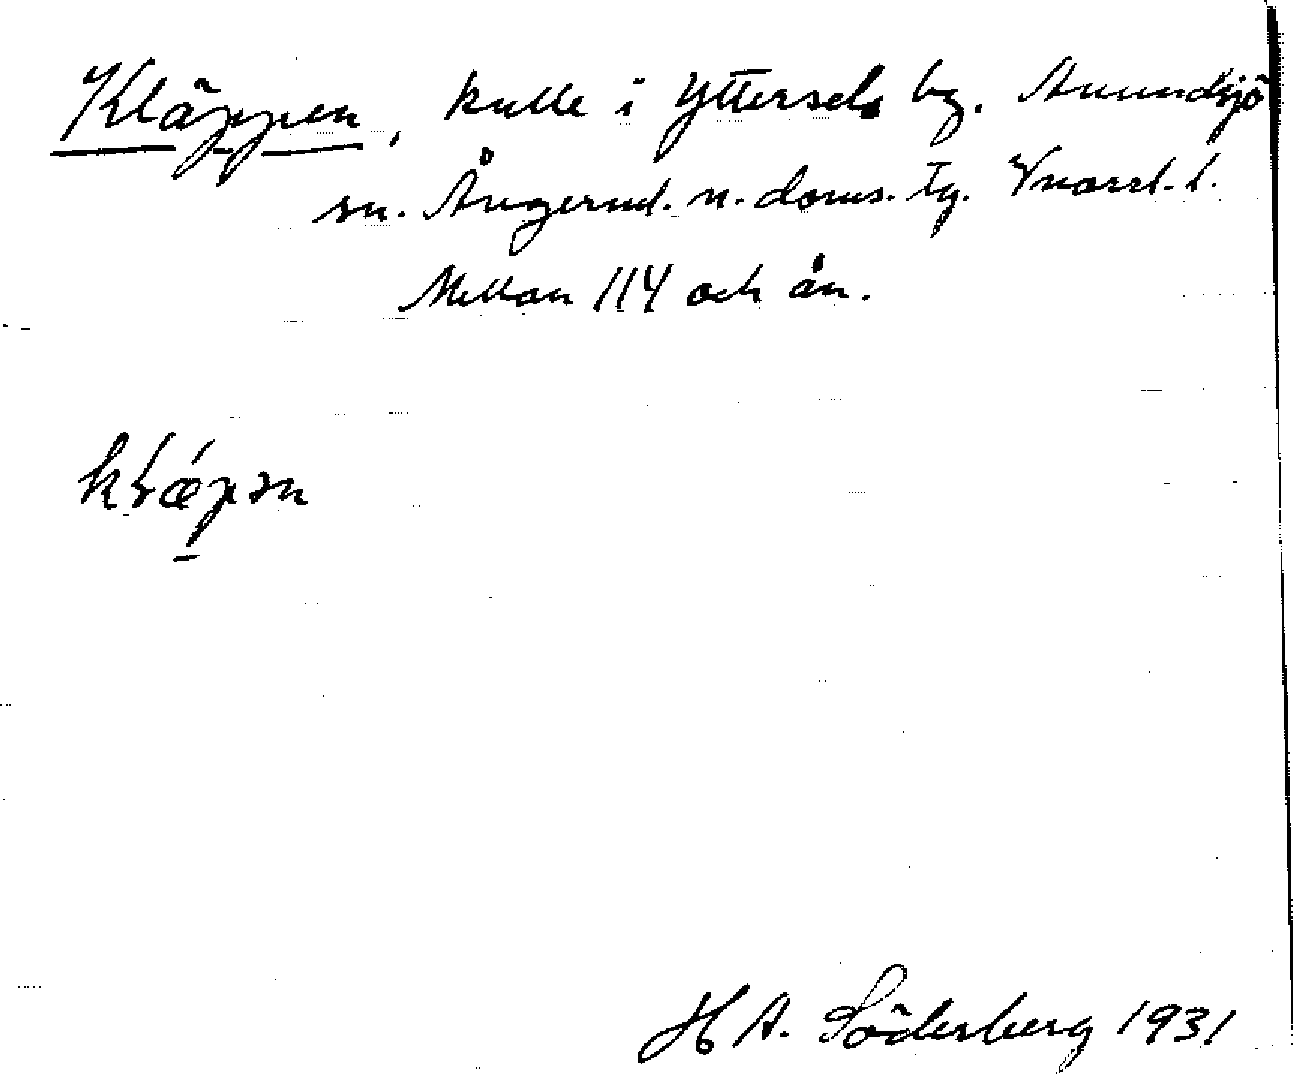 Kläppen, kulle i Yttersels by. Anundsjö
sn. Ångerml. n. doms. tg. Vnorrl. l.
Mellan 114 och ån.
H A. Söderberg 1931